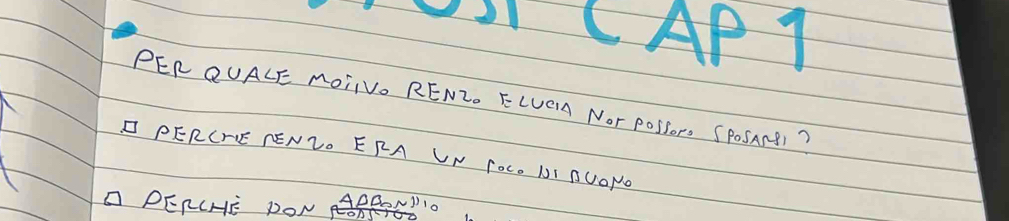 CAP 1
PER QUALE MOTIVO RENZO E LUCIA NOT POSSORO SPOSARSI?
PERCHE RENZO ERA UN POCO DI BUONO
PERCHÉ DON ABBONDIO